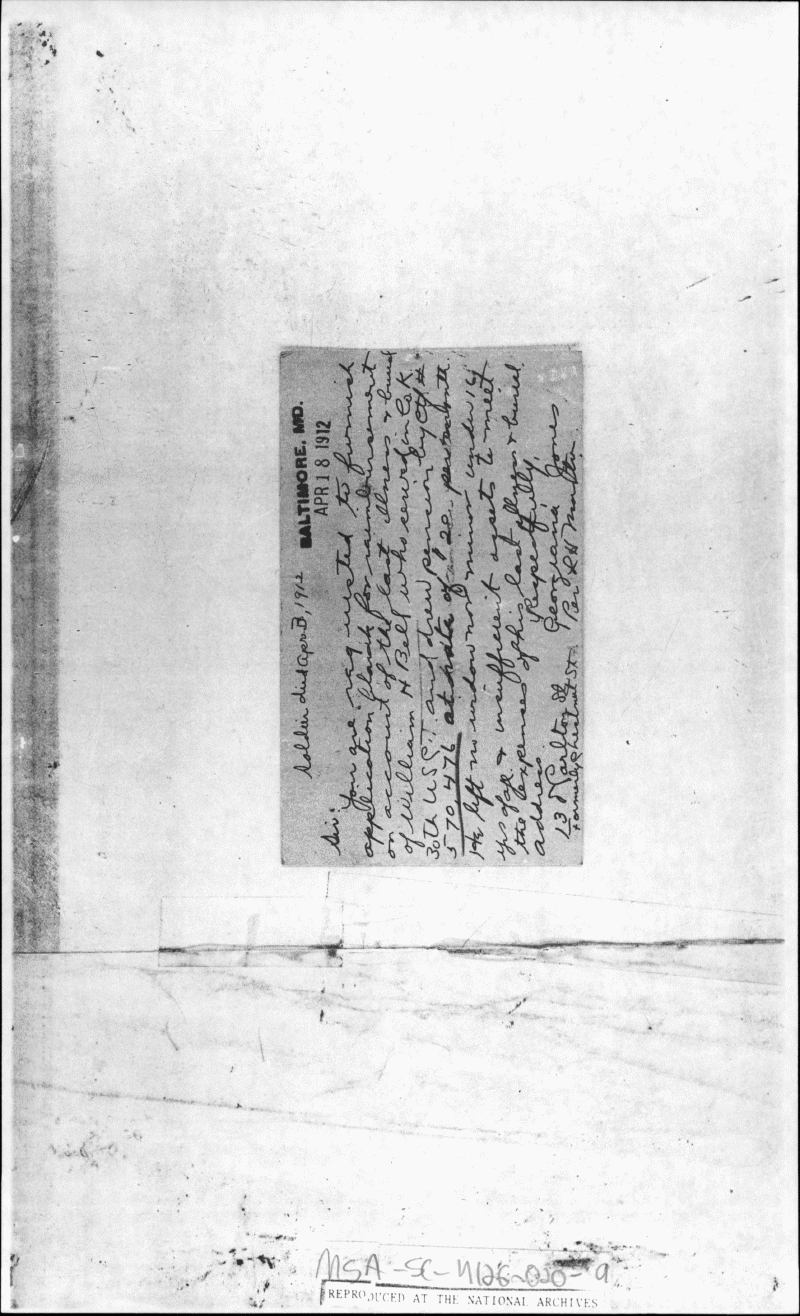 BALTIMORE, MD.
APR 18 1912
Soldier died Apr 3, 1912
Sir:
You are requested to furnish
application blank for reimbursement
on account of the last illness & burial
of William H Bell who served in Co K.
30th U.S.C.T. and drew pension by Ctf #
570,476 at rate of $20. per month
He left no widow nor minor under 16
yrs of age & insufficient assets to meet
the expenses of his last illness & burial
Respectfully,
address
Georgiana Jones
13 N Carlton St
Per R H
formerly Chestnut St.
MSA-SC-4126-050-9
REPRODUCED AT THE NATIONAL ARCHIVES